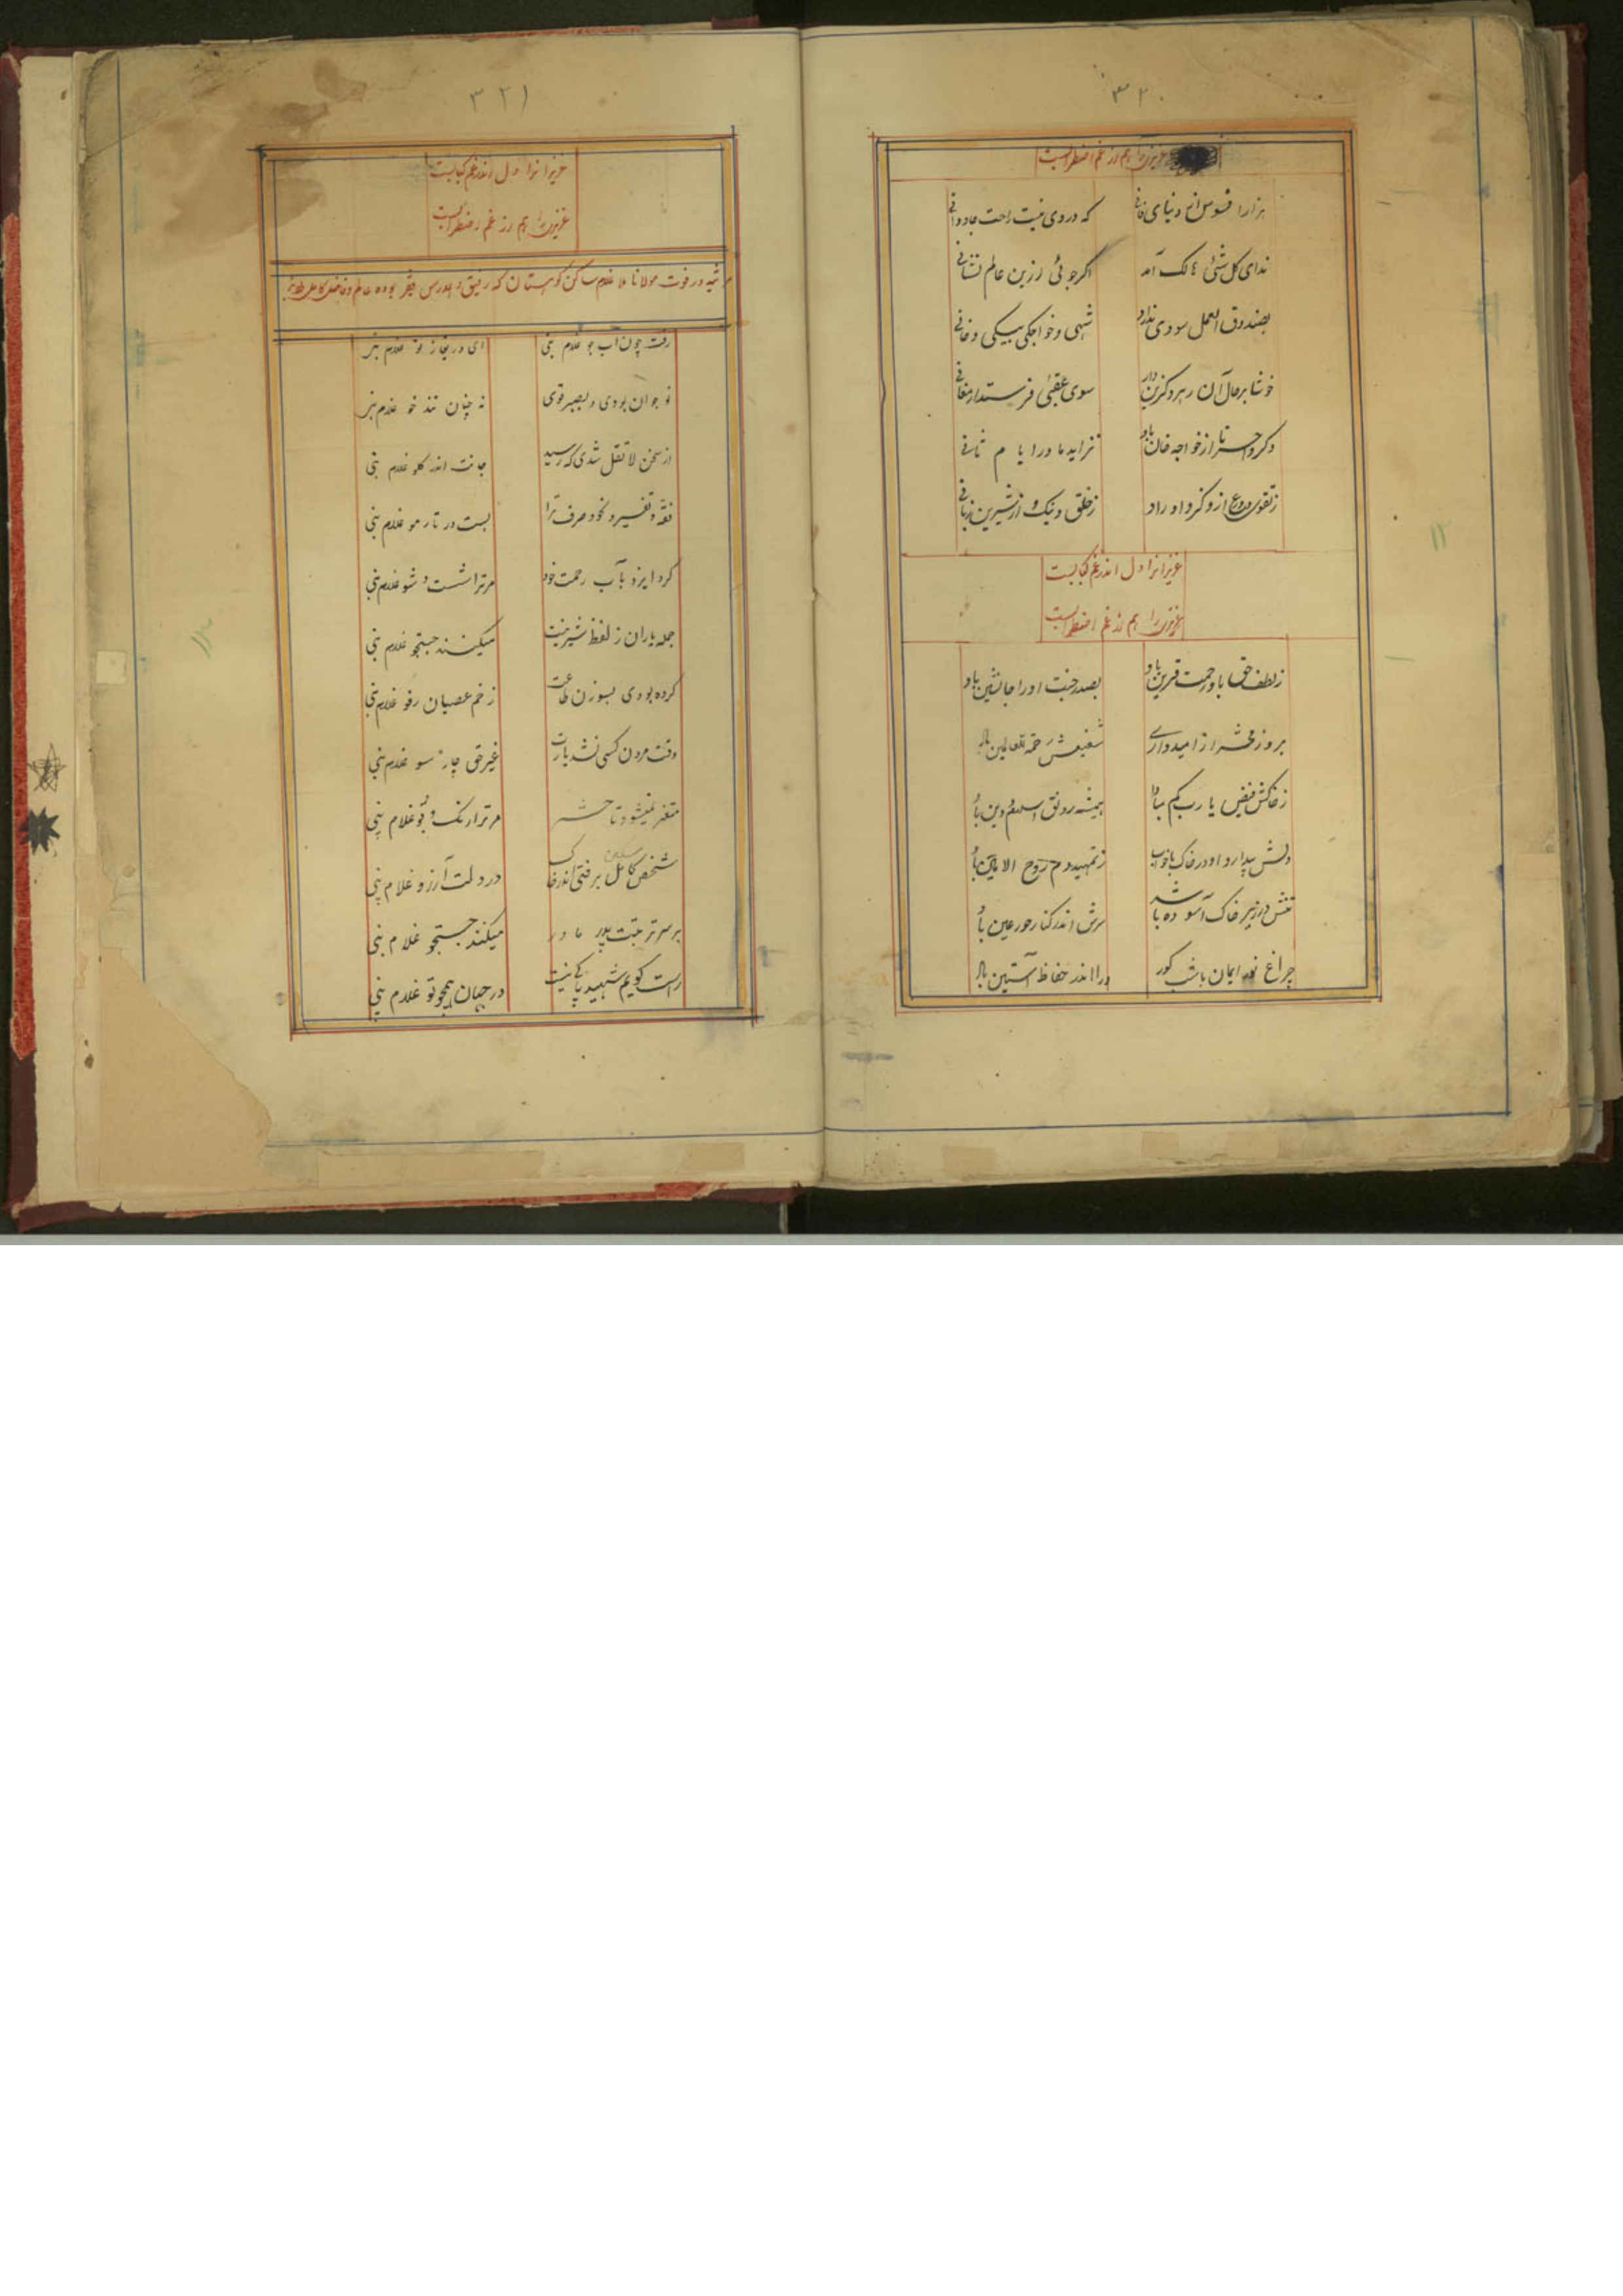 ۳۲۰
عزیزن را هم از غم اضطرابست
هزارا فسوس از دنیای فانی که در وی نیست راحت جاودانی
ندای کل شئ هالک آمد اگر جوئی ازین عالم نشانی
بصندوق العمل سودی ندارد شهی و خواجگی بیکی و خانی
خوشا بر حال آن رهرو کزین دار سوی عقبی فرستد ارمغانی
دگر وا حسرتا از خواجه خان باد نزاید مادر ایام ثانی
ز تقوی و ورع از ذکر و اوراد ز خلق و نیک و از شیرین زبانی
عزیزانرا دل اندر غم کبابست
عزیزن را هم از غم اضطرابست
ز لطف حق باو رحمت قرین باد بصدر جنت او را جانشین باد
بروز محشر از امیدواری شفیعش رحمة للعالمین باد
ز خاکش فیض یا رب کم مبادا همیشه رونق اسلام و دین باد
دلش بیدار و او در خاک باخواب ز تمهید دم روح الامین باد
تنش در زیر خاک آسوده باشد سرش اندر کنار حور عین باد
چراغ نور ایمان باشب گور ورا اندر حفاظ آستین باد
۳۲۱
عزیزانرا دل اندر غم کبابست
عزیزن را هم از غم اضطرابست
مرثیه در فوت مولانا ملا غلام ساکن کوهستان که رفیق و همدرس فقیر بوده عالم و فاضل کامل
رفت چون آب جو غلام نبی ای دریغا ز تو غلام نبی
نو جوان بودی و بصبر قوی نه چنان تند خو غلام نبی
از سخن لا تقل شدی که رسید جانت اندر گلو غلام نبی
فقه و تفسیر و نحو و صرف ترا بست در تار مو غلام نبی
کرد ایزد بآب رحمت خود مر ترا شست و شو غلام نبی
جمله یاران ز لفظ شیرینت میکنند جستجو غلام نبی
کرده بودی بسوزن طاعت زخم عصیان رفو غلام نبی
وقت مردن کسی نشد یارت غیر حق چار سو غلام نبی
متغیر نمیشود تا حشر مر ترا رنگ و بو غلام نبی
شخص کامل برفتی اندر خاک در دلت آرزو غلام نبی
بر سر تربتت پدر مادر میکند جستجو غلام نبی
راست گویم شهید پاکی نیست در جهان همچو تو غلام نبی